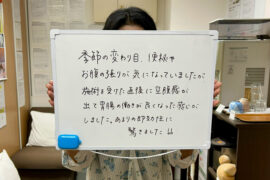 季節の変わり目、便秘や
お腹の張りが気になっていましたが
施術を受けた直後に空腹感が
出て胃腸の働きが良くなった感じが
しました。あまりの即効性に
驚きました!!